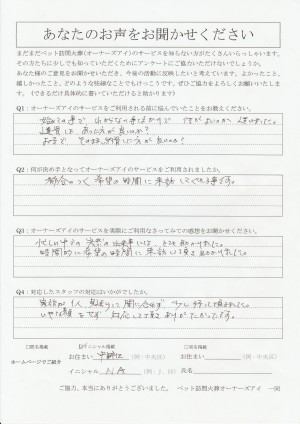 あなたのお声をお聞かせください
まだまだペット訪問火葬(オーナーズアイ)のサービスを知らない方がたくさんいらっしゃいます。
その方たちに少しでも知っていただくためにアンケートにご協力いただけないでしょうか。
あなた様のご意見をお聞かせいただき、今後の活動に反映したいと考えています。よかったこと、
嬉しかったこと、どのような些細なことでもけっこうです。ぜひ協力をよろしくお願いいたします。
(できるだけ具体的に書いていただけると助かります)
Q1:オーナーズアイのサービスをご利用される前に悩んでいたことをお教えください。
始めての事で わからない事ばかりで
Q2:何が決め手となってオーナーズアイのサービスをご利用されましたか。
都合のつく希望の時間に来訪してくれる事です。
Q3:オーナーズアイのサービスを実際にご利用なさってみての感想をお聞かせください。
忙しい中での突然の出来事でしたが、とても助かりました。
時間的に希望の時間に来訪して頂き助かりました。
Q4:対応したスタッフの対応はいかがでしたか。
家族が1人 見送りに間に合わず、少し待って頂きましたが、
いやな顔をせず 対応して頂きありがたかったです。
□匿名掲載 イニシャル掲載 □実名掲載
ホームページでご紹介 お住まい (例:中央区) お住まい (例:中央区)
イニシャル N.A (例:J、H) 氏名
ご協力、本当にありがとうございました。 ペット訪問火葬オーナーズアイ 一同